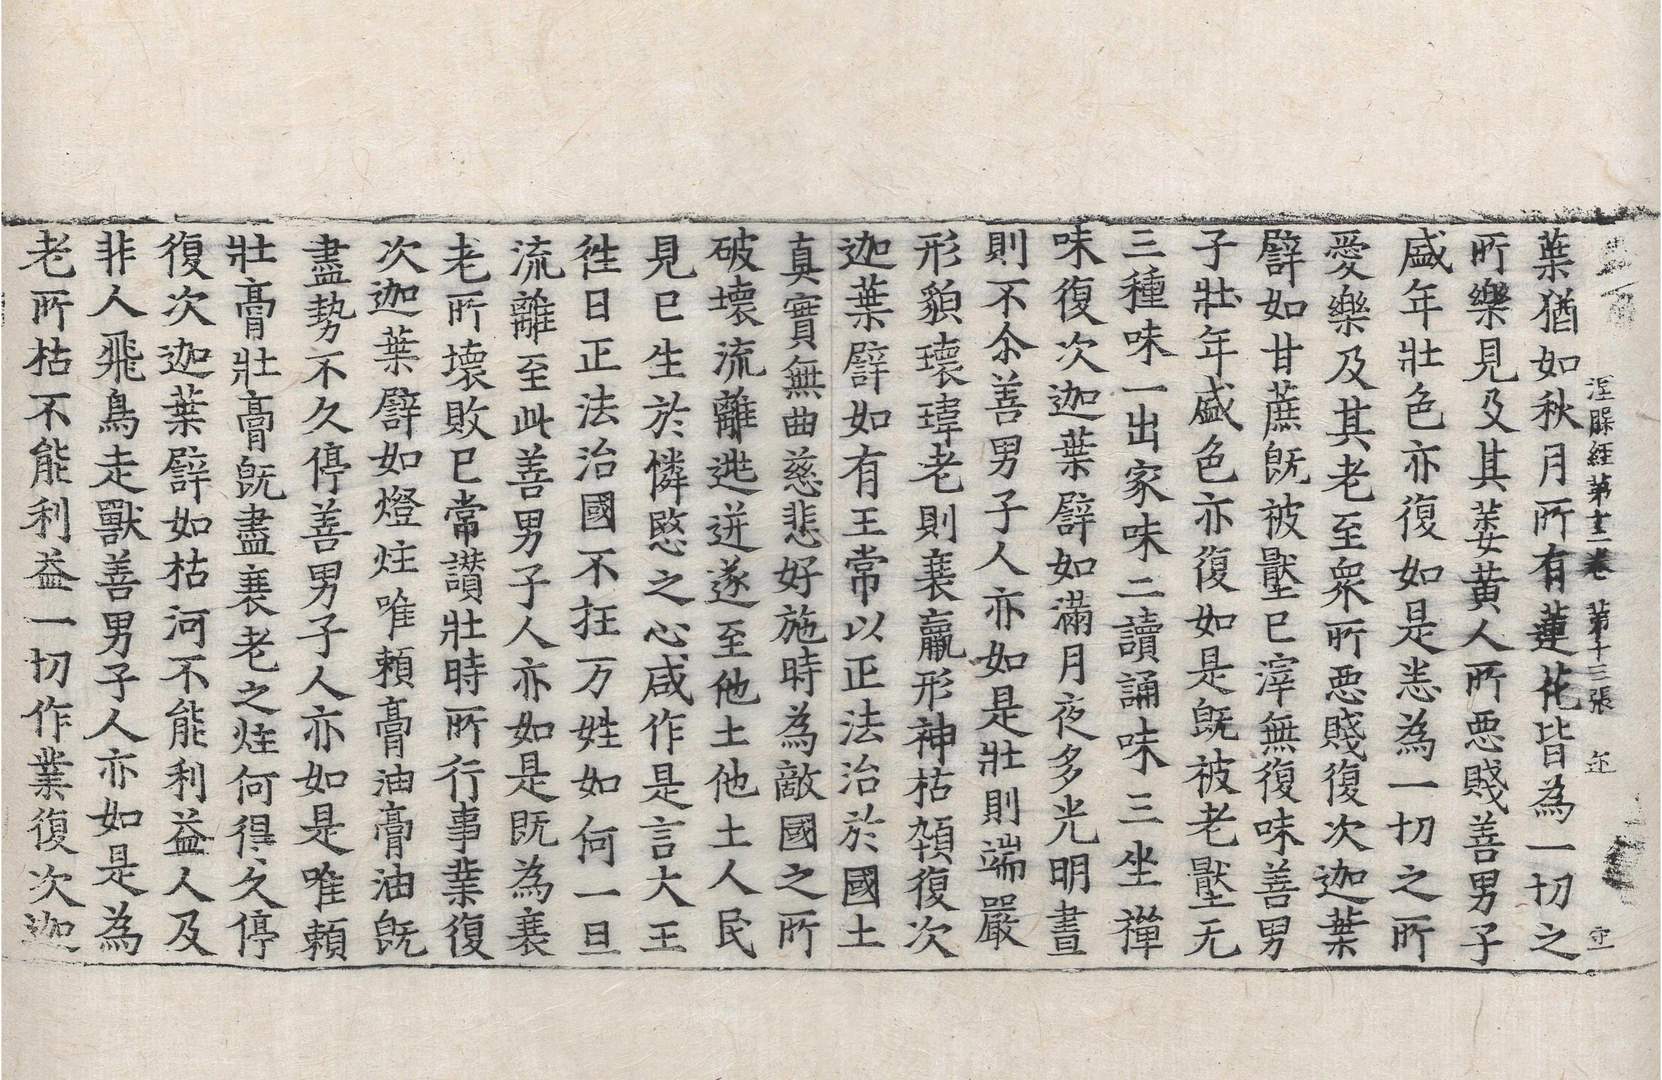 涅槃経第十二巻 第十三張 㢟 守
葉猶如秋月所有蓮花皆為一切之
所樂見及其萎黃人所惡賤善男子
盛年壯色亦復如是悉為一切之所
愛樂及其老至衆所惡賤復次迦葉
譬如甘蔗旣被壓已滓無復味善男
子壯年盛色亦復如是旣被老壓无
三種味一出家味二讀誦味三坐禪
味復次迦葉譬如滿月夜多光明晝
則不尒善男子人亦如是壯則端嚴
形貌瓌瑋老則衰羸形神枯顇復次
迦葉譬如有王常以正法治於國土
真實無曲慈悲好施時為敵國之所
破壞流離逃迸遂至他土他土人民
見已生於憐愍之心咸作是言大王
徃日正法治國不抂万姓如何一旦
流離至此善男子人亦如是既為衰
老所壞敗已常讚壯時所行事業復
次迦葉譬如燈炷唯賴膏油膏油旣
盡勢不久停善男子人亦如是唯賴
壯膏壯膏旣盡衰老之炷何得久停
復次迦葉譬如枯河不能利益人及
非人飛鳥走獸善男子人亦如是為
老所枯不能利益一切作業復次迦